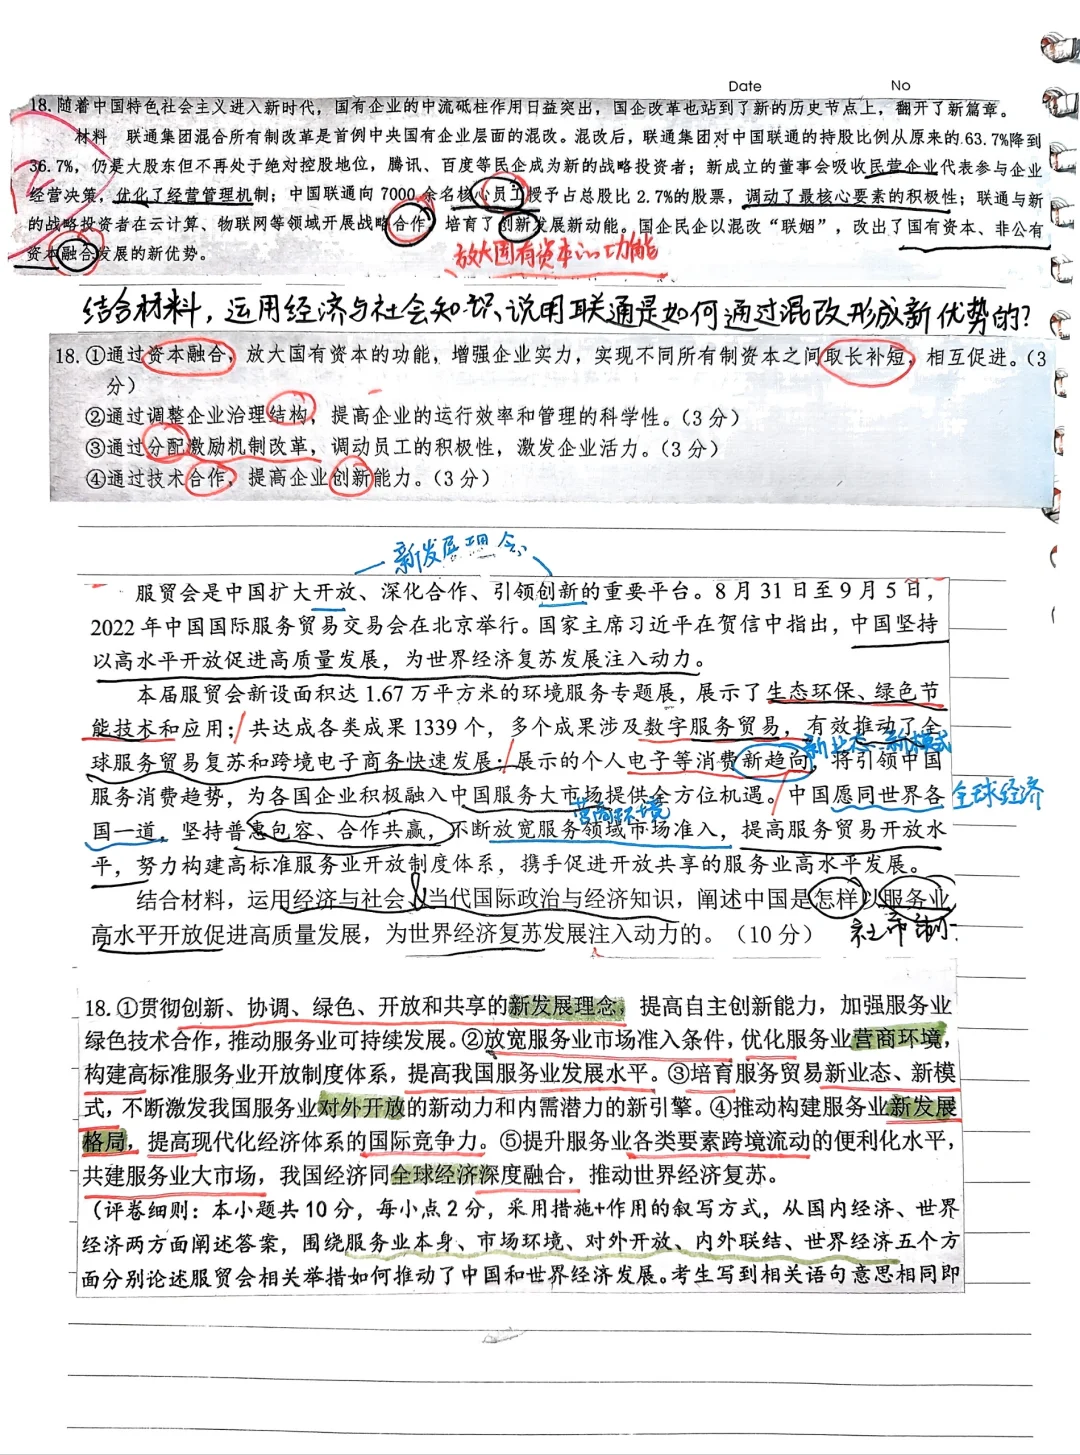 Date No
18. 随着中国特色社会主义进入新时代，国有企业的中流砥柱作用日益突出，国企改革也站到了新的历史节点上，翻开了新篇章。
材料 联通集团混合所有制改革是首例中央国有企业层面的混改。混改后，联通集团对中国联通的持股比例从原来的63.7%降到
36.7%，仍是大股东但不再处于绝对控股地位，腾讯、百度等民企成为新的战略投资者；新成立的董事会吸收民营企业代表参与企业
经营决策，优化了经营管理机制；中国联通向7000余名核心员工授予占总股比2.7%的股票，调动了最核心要素的积极性；联通与新
的战略投资者在云计算、物联网等领域开展战略合作，培育了创新发展新动能。国企民企以混改“联姻”，改出了国有资本、非公有
资本融合发展的新优势。
放大国有资本的功能
结合材料，运用经济与社会知识，说明联通是如何通过混改形成新优势的？
18. ①通过资本融合，放大国有资本的功能，增强企业实力，实现不同所有制资本之间取长补短，相互促进。（3
分）
②通过调整企业治理结构，提高企业的运行效率和管理的科学性。（3分）
③通过分配激励机制改革，调动员工的积极性，激发企业活力。（3分）
④通过技术合作，提高企业创新能力。（3分）
新发展理念
服贸会是中国扩大开放、深化合作、引领创新的重要平台。8月31日至9月5日，
2022年中国国际服务贸易交易会在北京举行。国家主席习近平在贺信中指出，中国坚持
以高水平开放促进高质量发展，为世界经济复苏发展注入动力。
本届服贸会新设面积达1.67万平方米的环境服务专题展，展示了生态环保、绿色节
能技术和应用；共达成各类成果1339个，多个成果涉及数字服务贸易，有效推动了全
新业态、新模式
球服务贸易复苏和跨境电子商务快速发展；展示的个人电子等消费新趋向，将引领中国
服务消费趋势，为各国企业积极融入中国服务大市场提供全方位机遇。中国愿同世界各
全球经济
营商环境
国一道，坚持普惠包容、合作共赢，不断放宽服务领域市场准入，提高服务贸易开放水
平，努力构建高标准服务业开放制度体系，携手促进开放共享的服务业高水平发展。
结合材料，运用经济与社会、当代国际政治与经济知识，阐述中国是怎样以服务业
高水平开放促进高质量发展，为世界经济复苏发展注入动力的。（10分）
18. ①贯彻创新、协调、绿色、开放和共享的新发展理念，提高自主创新能力，加强服务业
绿色技术合作，推动服务业可持续发展。②放宽服务业市场准入条件，优化服务业营商环境，
构建高标准服务业开放制度体系，提高我国服务业发展水平。③培育服务贸易新业态、新模
式，不断激发我国服务业对外开放的新动力和内需潜力的新引擎。④推动构建服务业新发展
格局，提高现代化经济体系的国际竞争力。⑤提升服务业各类要素跨境流动的便利化水平，
共建服务业大市场，我国经济同全球经济深度融合，推动世界经济复苏。
（评卷细则：本小题共10分，每小点2分，采用措施+作用的叙写方式，从国内经济、世界
经济两方面阐述答案，围绕服务业本身、市场环境、对外开放、内外联结、世界经济五个方
面分别论述服贸会相关举措如何推动了中国和世界经济发展。考生写到相关语句意思相同即